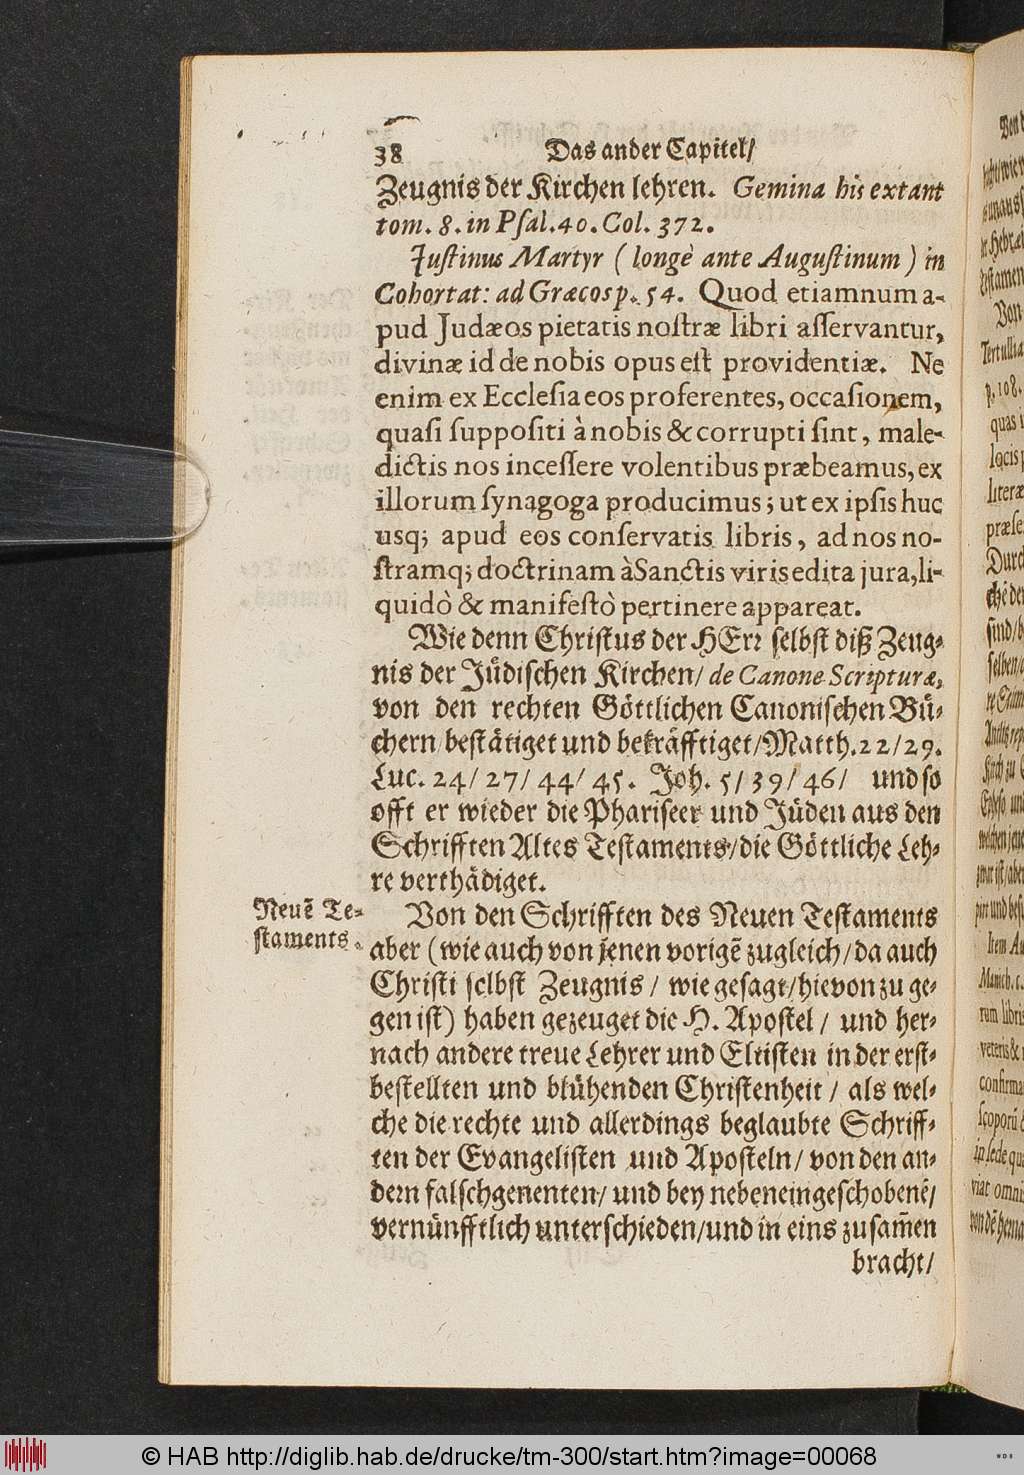 38 Das ander Capitel/
Zeugnis der Kirchen lehren. Gemina his extant
tom. 8. in Psal. 40. Col. 372.
Justinus Martyr (longè ante Augustinum) in
Cohortat: ad Græcos p. 54. Quod etiamnum a-
pud Judæos pietatis nostræ libri asservantur,
divinæ id de nobis opus est providentiæ. Ne
enim ex Ecclesia eos proferentes, occasionem,
quasi suppositi à nobis & corrupti sint, male-
dictis nos incessere volentibus præbeamus, ex
illorum synagoga producimus; ut ex ipsis huc
usq; apud eos conservatis libris, ad nos no-
stramq; doctrinam à Sanctis viris edita jura, li-
quidò & manifestò pertinere appareat.
Wie denn Christus der HErr selbst diß Zeug-
nis der Jüdischen Kirchen/ de Canone Scripturæ,
von den rechten Göttlichen Canonischen Bü-
chern bestätiget und bekräfftiget/ Matth. 22/29.
Luc. 24/ 27/ 44/ 45. Joh. 5/ 39/ 46/ und so
offt er wieder die Phariseer und Jüden aus den
Schrifften Altes Testaments/ die Göttliche Leh-
re verthädiget.
Neuē Te-
staments.
Von den Schrifften des Neuen Testaments
aber (wie auch von jenen vorigē zugleich/ da auch
Christi selbst Zeugnis/ wie gesagt/ hievon zu ge-
gen ist) haben gezeuget die H. Apostel/ und her-
nach andere treue Lehrer und Eltisten in der erst-
bestellten und blühenden Christenheit/ als wel-
che die rechte und allerdings beglaubte Schriff-
ten der Evangelisten und Aposteln/ von den an-
dern falschgenenten/ und bey nebeneingeschobenē/
vernünfftlich unterschieden/ und in eins zusam̄en
bracht/
© HAB http://diglib.hab.de/drucke/tm-300/start.htm?image=00068